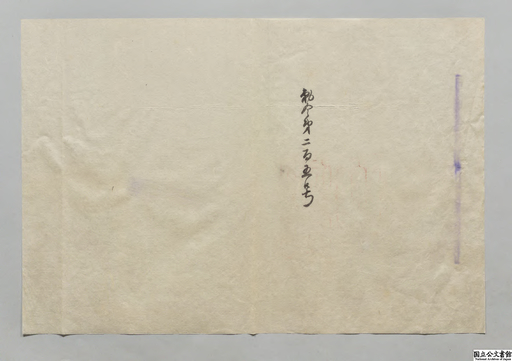 勅令第二百五号
国立公文書館
National Archives of Japan